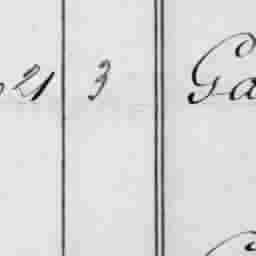 21 3 Ga